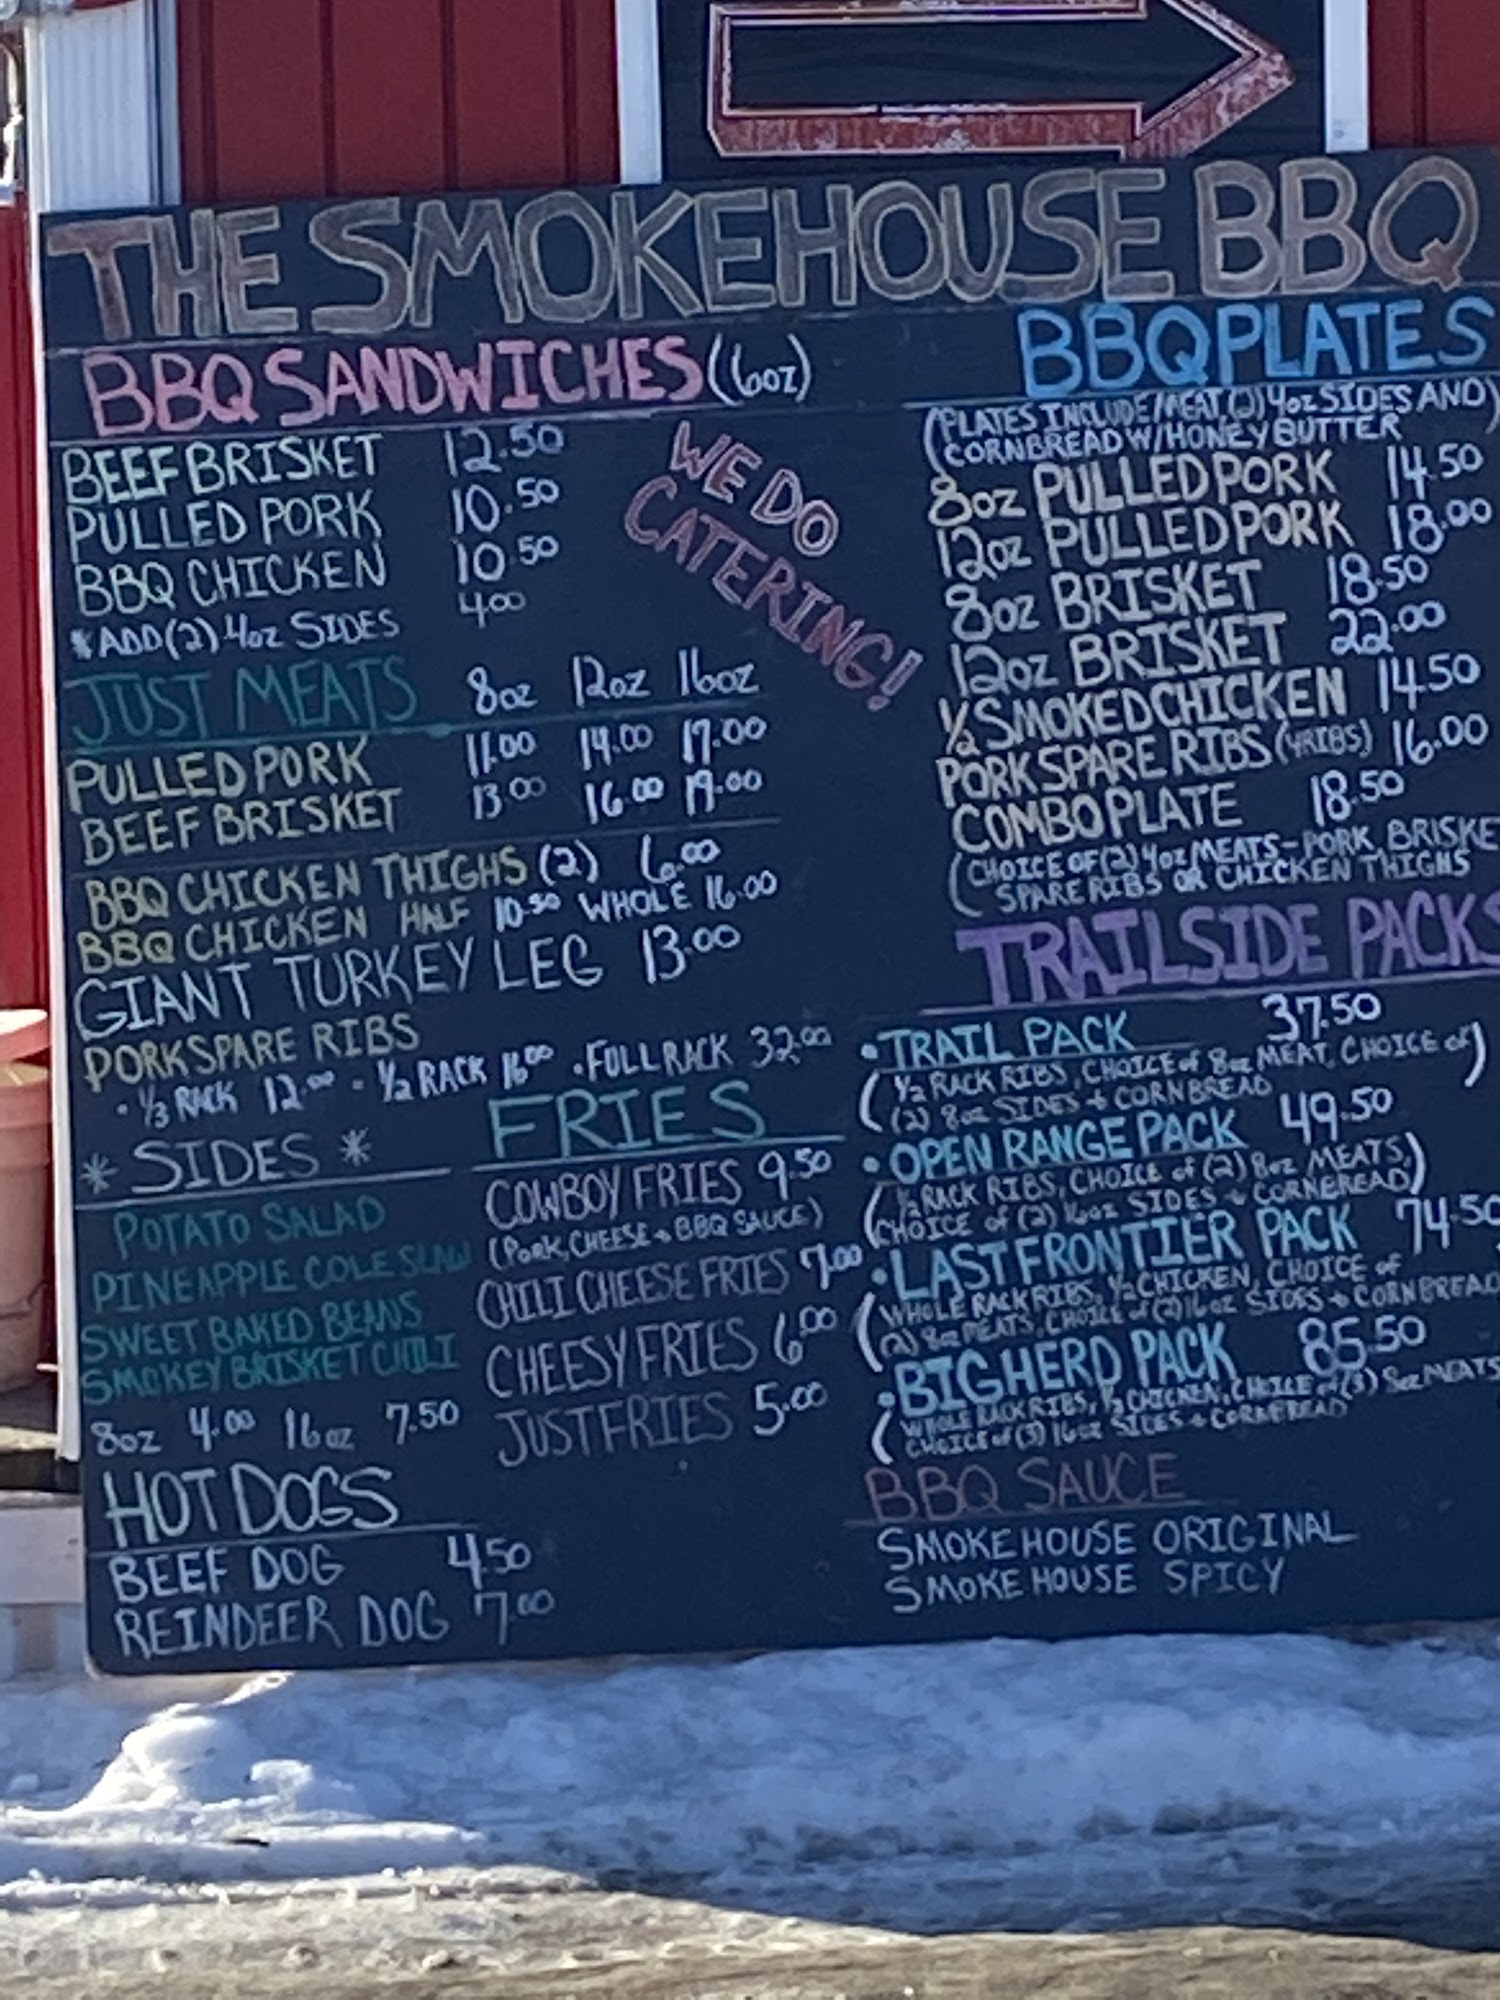 THE SMOKEHOUSE BBQ
BBQ SANDWICHES (6oz)
BEEF BRISKET 12.50
PULLED PORK 10.50
BBQ CHICKEN 10.50
*ADD (2) 4oz SIDES 4.00
WE DO
CATERING!
JUST MEATS 8oz 12oz 16oz
PULLED PORK 11.00 14.00 17.00
BEEF BRISKET 13.00 16.00 19.00
BBQ CHICKEN THIGHS (2) 6.00
BBQ CHICKEN HALF 10.50 WHOLE 16.00
GIANT TURKEY LEG 13.00
PORK SPARE RIBS
• 1/3 RACK 12.00 • 1/2 RACK 18.00 • FULL RACK 32.00
* SIDES *
POTATO SALAD
PINEAPPLE COLE SLAW
SWEET BAKED BEANS
SMOKEY BRISKET CHILI
8oz 4.00 16oz 7.50
FRIES
COWBOY FRIES 9.50
(PORK, CHEESE + BBQ SAUCE)
CHILI CHEESE FRIES 7.00
CHEESY FRIES 6.00
JUST FRIES 5.00
HOT DOGS
BEEF DOG 4.50
REINDEER DOG 7.00
BBQ PLATES
(PLATES INCLUDE MEAT, (2) 4oz SIDES AND)
(CORNBREAD W/HONEY BUTTER
8oz PULLED PORK 14.50
12oz PULLED PORK 18.00
8oz BRISKET 18.50
12oz BRISKET 22.00
1/2 SMOKED CHICKEN 14.50
PORK SPARE RIBS (4 RIBS) 16.00
COMBO PLATE 18.50
(CHOICE OF (2) 4oz MEATS - PORK, BRISKE
SPARE RIBS OR CHICKEN THIGHS
TRAILSIDE PACKS
• TRAIL PACK 37.50
(1/2 RACK RIBS, CHOICE of 8oz MEAT, CHOICE of)
(2) 8oz SIDES + CORNBREAD
• OPEN RANGE PACK 49.50
(1/2 RACK RIBS, CHOICE of (2) 8oz MEATS,)
CHOICE of (2) 16oz SIDES + CORNBREAD)
• LAST FRONTIER PACK 74.50
(WHOLE RACK RIBS, 1/2 CHICKEN, CHOICE of
(2) 8oz MEATS, CHOICE of (2) 16oz SIDES + CORNBREAD
• BIG HERD PACK 85.50
(WHOLE RACK RIBS, 1/2 CHICKEN, CHOICE of (3) 8oz MEATS
CHOICE of (3) 16oz SIDES + CORNBREAD
BBQ SAUCE
SMOKEHOUSE ORIGINAL
SMOKEHOUSE SPICY